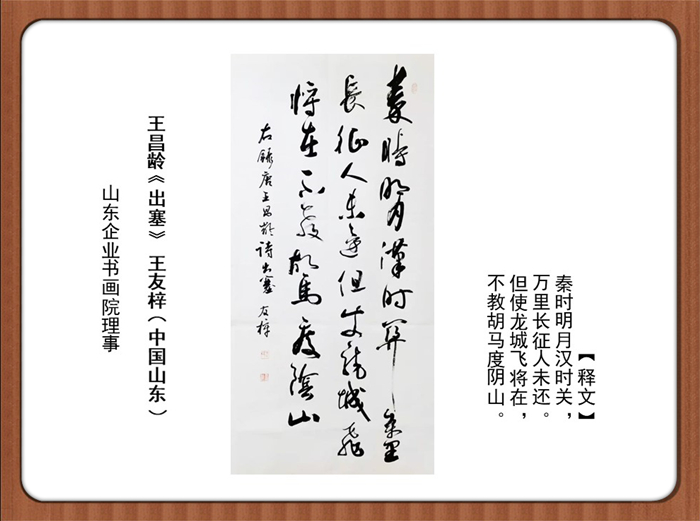 【释文】
秦时明月汉时关，
万里长征人未还。
但使龙城飞将在，
不教胡马度阴山。
秦時明月漢時關萬里
長征人未還但使龍城飛
將在不教胡馬度陰山
右錄唐王昌齡詩出塞 友梓
王昌龄《出塞》 王友梓（中国山东）
山东企业书画院理事